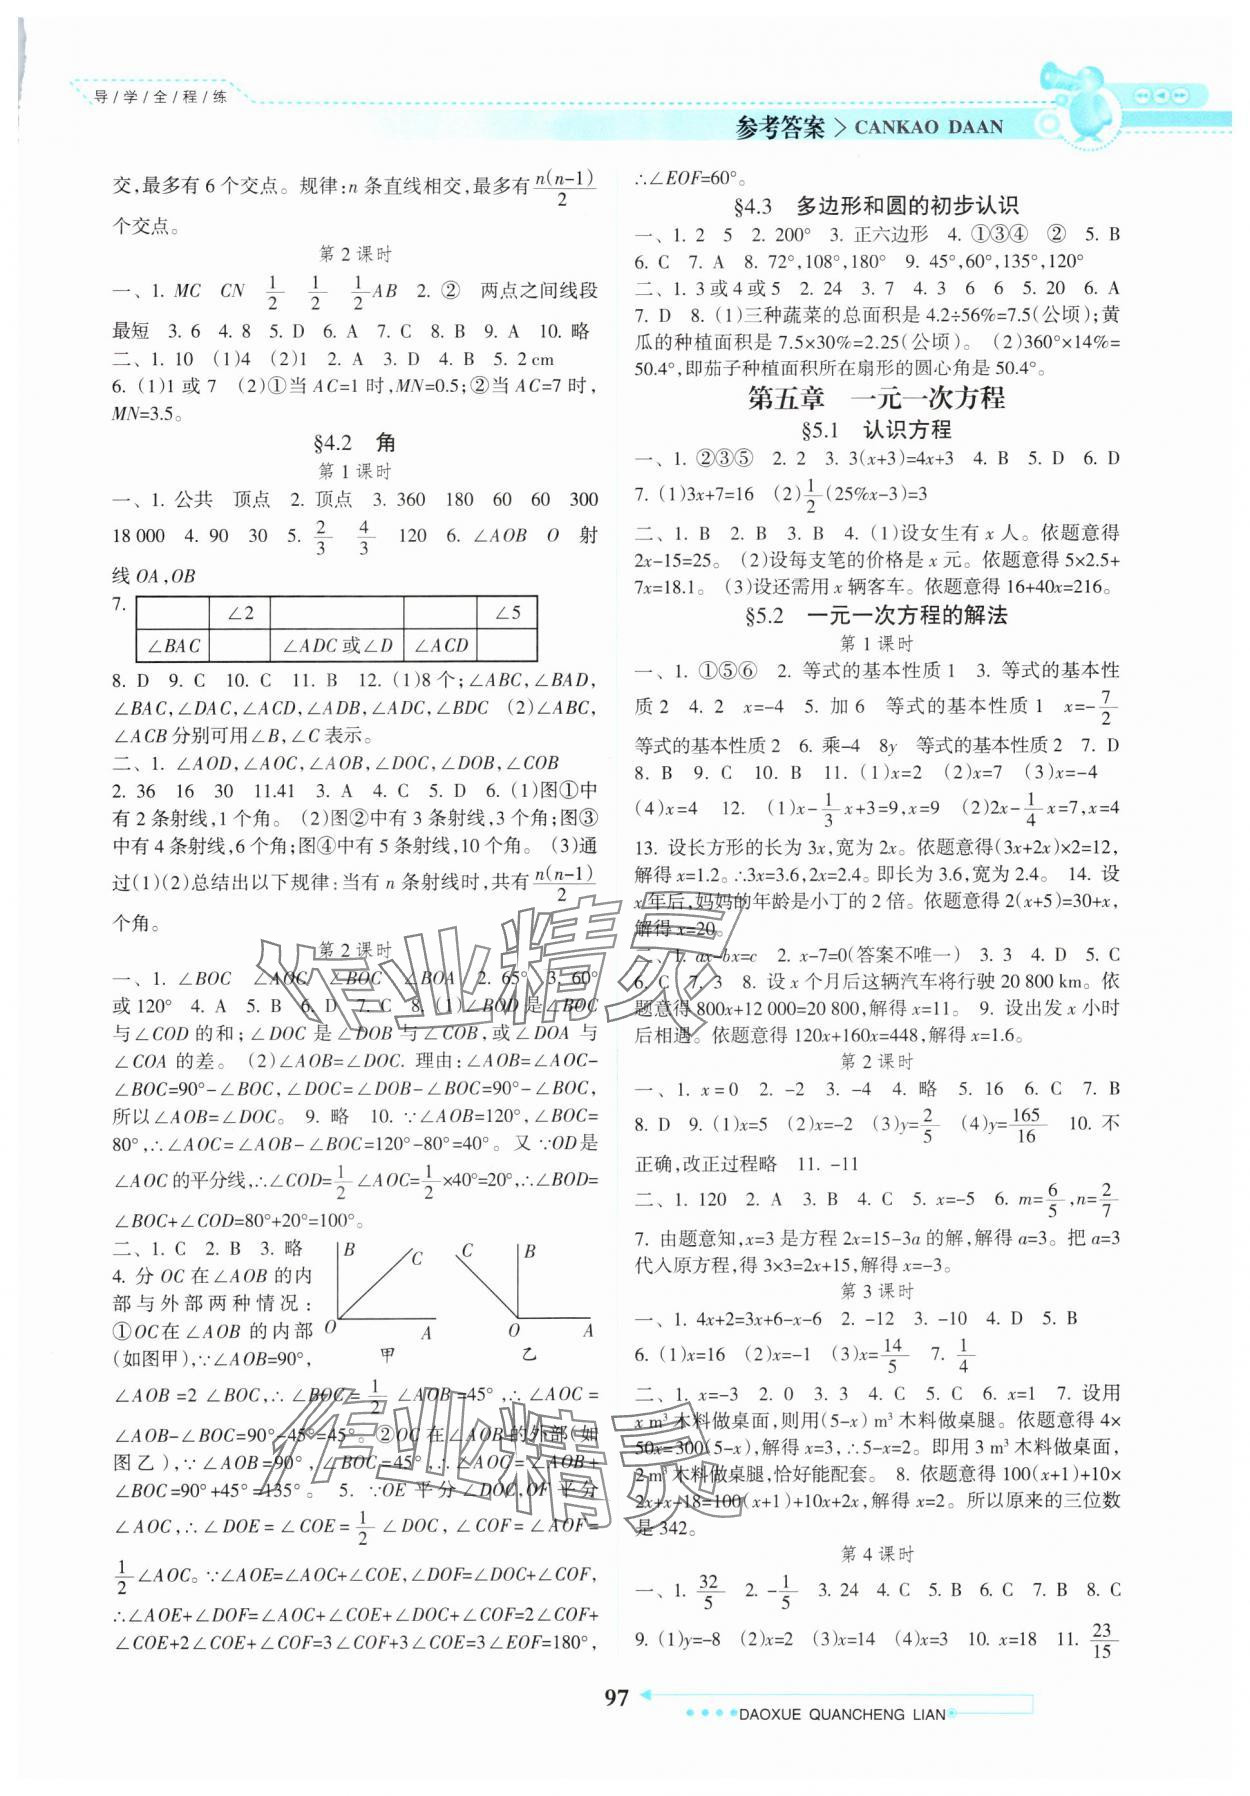 导/学/全/程/练
参考答案>CANKAO DAAN
交,最多有6个交点。规律:n条直线相交,最多有n(n-1)/2
个交点。
第2课时
一、1. MC CN 1/2 1/2 1/2AB 2. ② 两点之间线段
最短 3. 6 4. 8 5. D 6. A 7. C 8. B 9. A 10. 略
二、1. 10 (1)4 (2)1 2. A 3. D 4. B 5. 2 cm
6. (1)1或7 (2)①当AC=1时,MN=0.5;②当AC=7时,
MN=3.5。
§4.2 角
第1课时
一、1. 公共 顶点 2. 顶点 3. 360 180 60 60 300
18 000 4. 90 30 5. 2/3 4/3 120 6. ∠AOB O 射
线OA,OB
7.
∠2 ∠5
∠BAC ∠ADC或∠D ∠ACD
8. D 9. C 10. C 11. B 12. (1)8个;∠ABC,∠BAD,
∠BAC,∠DAC,∠ACD,∠ADB,∠ADC,∠BDC (2)∠ABC,
∠ACB分别可用∠B,∠C表示。
二、1. ∠AOD,∠AOC,∠AOB,∠DOC,∠DOB,∠COB
2. 36 16 30 11.41 3. A 4. C 5. D 6. (1)图①中
有2条射线,1个角。(2)图②中有3条射线,3个角;图③
中有4条射线,6个角;图④中有5条射线,10个角。(3)通
过(1)(2)总结出以下规律:当有n条射线时,共有n(n-1)/2
个角。
第2课时
一、1. ∠BOC ∠AOC ∠BOC ∠BOA 2. 65° 3. 60°
或120° 4. A 5. B 6. D 7. C 8. (1)∠BOD是∠BOC
与∠COD的和;∠DOC是∠DOB与∠COB,或∠DOA与
∠COA的差。(2)∠AOB=∠DOC. 理由:∠AOB=∠AOC-
∠BOC=90°-∠BOC,∠DOC=∠DOB-∠BOC=90°-∠BOC,
所以∠AOB=∠DOC。 9. 略 10. ∵∠AOB=120°,∠BOC=
80°,∴∠AOC=∠AOB-∠BOC=120°-80°=40°。又∵OD是
∠AOC的平分线,∴∠COD=1/2∠AOC=1/2×40°=20°,∴∠BOD=
∠BOC+∠COD=80°+20°=100°。
二、1. C 2. B 3. 略
4. 分OC在∠AOB的内
部与外部两种情况:
①OC在∠AOB的内部
(如图甲),∵∠AOB=90°,
B C O A 甲
C B O A 乙
∠AOB=2∠BOC,∴∠BOC=1/2∠AOB=45°,∴∠AOC=
∠AOB-∠BOC=90°-45°=45°。②OC在∠AOB的外部(如
图乙),∵∠AOB=90°,∠BOC=45°,∴∠AOC=∠AOB+
∠BOC=90°+45°=135°。 5. ∵OE平分∠DOC,OF平分
∠AOC,∴∠DOE=∠COE=1/2∠DOC,∠COF=∠AOF=
1/2∠AOC。∵∠AOE=∠AOC+∠COE,∠DOF=∠DOC+∠COF,
∴∠AOE+∠DOF=∠AOC+∠COE+∠DOC+∠COF=2∠COF+
∠COE+2∠COE+∠COF=3∠COF+3∠COE=3∠EOF=180°,
∴∠EOF=60°。
§4.3 多边形和圆的初步认识
一、1. 2 5 2. 200° 3. 正六边形 4. ①③④ ② 5. B
6. C 7. A 8. 72°,108°,180° 9. 45°,60°,135°,120°
二、1. 3或4或5 2. 24 3. 7 4. 3 6 6 5. 20 6. A
7. D 8. (1)三种蔬菜的总面积是4.2÷56%=7.5(公顷);黄
瓜的种植面积是7.5×30%=2.25(公顷)。 (2)360°×14%=
50.4°,即茄子种植面积所在扇形的圆心角是50.4°。
第五章 一元一次方程
§5.1 认识方程
一、1. ②③⑤ 2. 2 3. 3(x+3)=4x+3 4. B 5. D 6. D
7. (1)3x+7=16 (2)1/2(25%x-3)=3
二、1. B 2. B 3. B 4. (1)设女生有x人。依题意得
2x-15=25。 (2)设每支笔的价格是x元。依题意得5×2.5+
7x=18.1。 (3)设还需用x辆客车。依题意得16+40x=216。
§5.2 一元一次方程的解法
第1课时
一、1. ①⑤⑥ 2. 等式的基本性质1 3. 等式的基本性
质2 4. 2 x=-4 5. 加6 等式的基本性质1 x=-7/2
等式的基本性质2 6. 乘-4 8y 等式的基本性质2 7. D
8. B 9. C 10. B 11. (1)x=2 (2)x=7 (3)x=-4
(4)x=4 12. (1)x-1/3x+3=9,x=9 (2)2x-1/4x=7,x=4
13. 设长方形的长为3x,宽为2x。依题意得(3x+2x)×2=12,
解得x=1.2。∴3x=3.6,2x=2.4。即长为3.6,宽为2.4。 14. 设
x年后,妈妈的年龄是小丁的2倍。依题意得2(x+5)=30+x,
解得x=20。
二、1. ax-bx=c 2. x-7=0(答案不唯一) 3. 3 4. D 5. C
6. C 7. 3 8. 设x个月后这辆汽车将行驶20 800 km。依
题意得800x+12 000=20 800,解得x=11。 9. 设出发x小时
后相遇。依题意得120x+160x=448,解得x=1.6。
第2课时
一、1. x=0 2. -2 3. -4 4. 略 5. 16 6. C 7. B
8. D 9. (1)x=5 (2)x=-2 (3)y=2/5 (4)y=165/16 10. 不
正确,改正过程略 11. -11
二、1. 120 2. A 3. B 4. C 5. x=-5 6. m=6/5,n=2/7
7. 由题意知,x=3是方程2x=15-3a的解,解得a=3。把a=3
代入原方程,得3×3=2x+15,解得x=-3。
第3课时
一、1. 4x+2=3x+6-x-6 2. -12 3. -10 4. D 5. B
6. (1)x=16 (2)x=-1 (3)x=14/5 7. 1/4
二、1. x=-3 2. 0 3. 3 4. C 5. C 6. x=1 7. 设用
x m³木料做桌面,则用(5-x) m³木料做桌腿。依题意得4×
50x=300(5-x),解得x=3,∴5-x=2。即用3 m³木料做桌面,
2 m³木料做桌腿,恰好能配套。 8. 依题意得100(x+1)+10×
2x+x+18=100(x+1)+10x+2x,解得x=2。所以原来的三位数
是342。
第4课时
一、1. 32/5 2. -1/5 3. 24 4. C 5. B 6. C 7. B 8. C
9. (1)y=-8 (2)x=2 (3)x=14 (4)x=3 10. x=18 11. 23/15
作业精灵
作业精灵
97
DAOXUE QUANCHENG LIAN